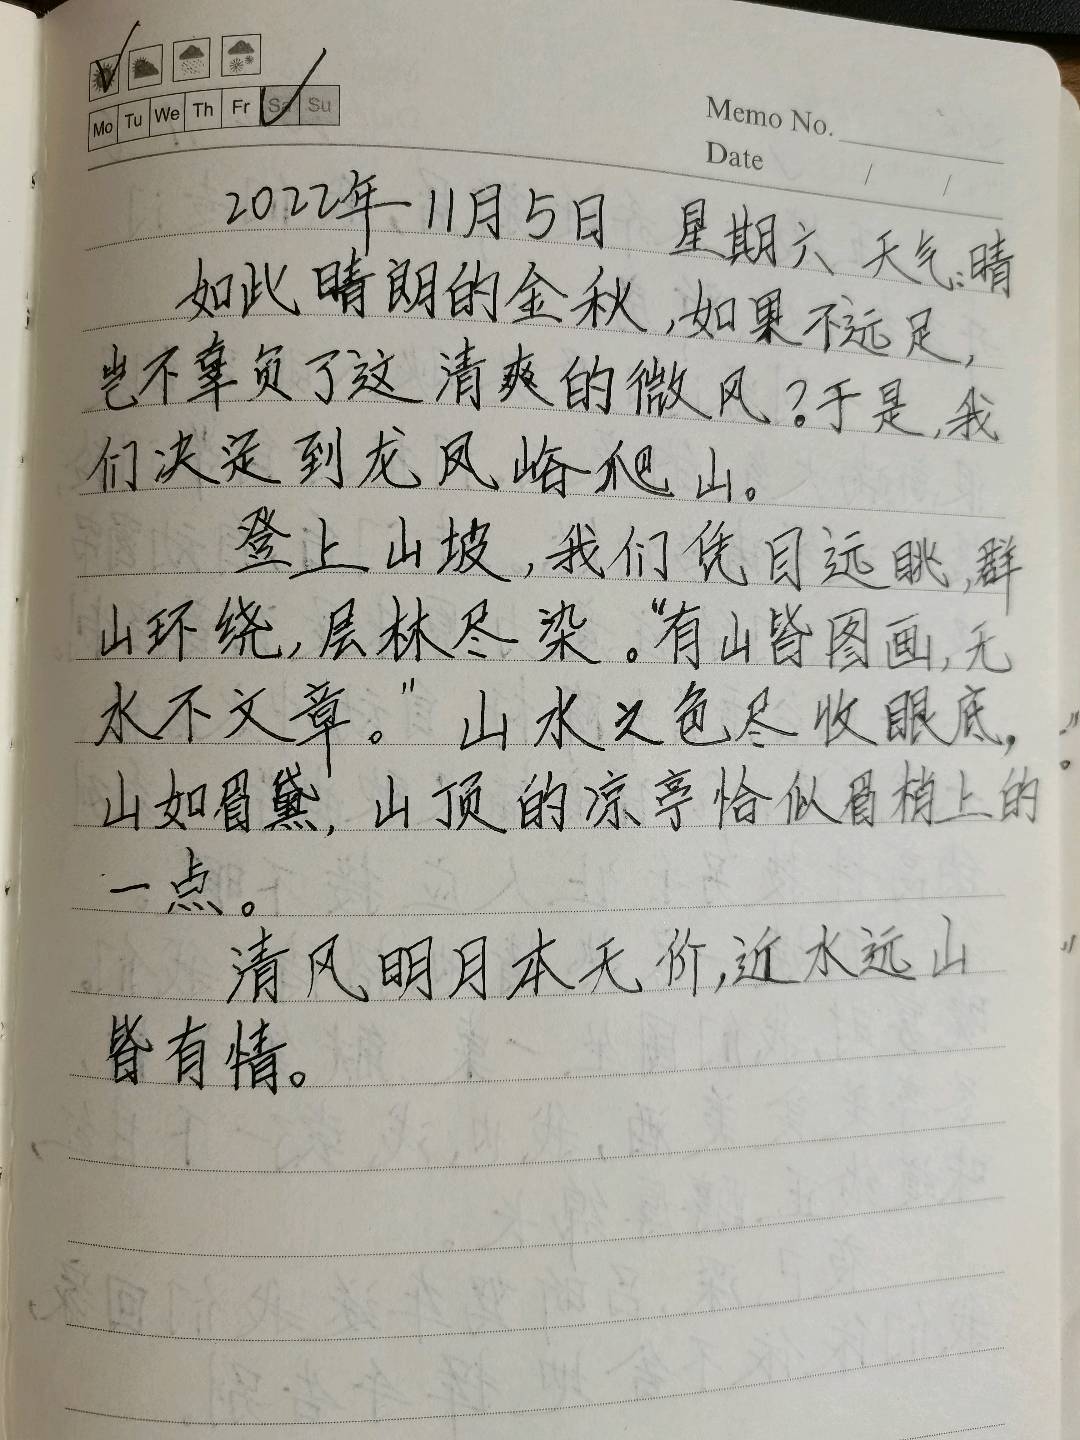 Mo Tu We Th Fr Sa Su
Memo No.
Date / /
2022年11月5日 星期六 天气:晴
如此晴朗的金秋,如果不远足,
岂不辜负了这清爽的微风?于是,我
们决定到龙凤峪爬山。
登上山坡,我们凭目远眺,群
山环绕,层林尽染。“有山皆图画,无
水不文章。”山水之色尽收眼底,
山如眉黛,山顶的凉亭恰似眉梢上的
一点。
清风明月本无价,近水远山
皆有情。